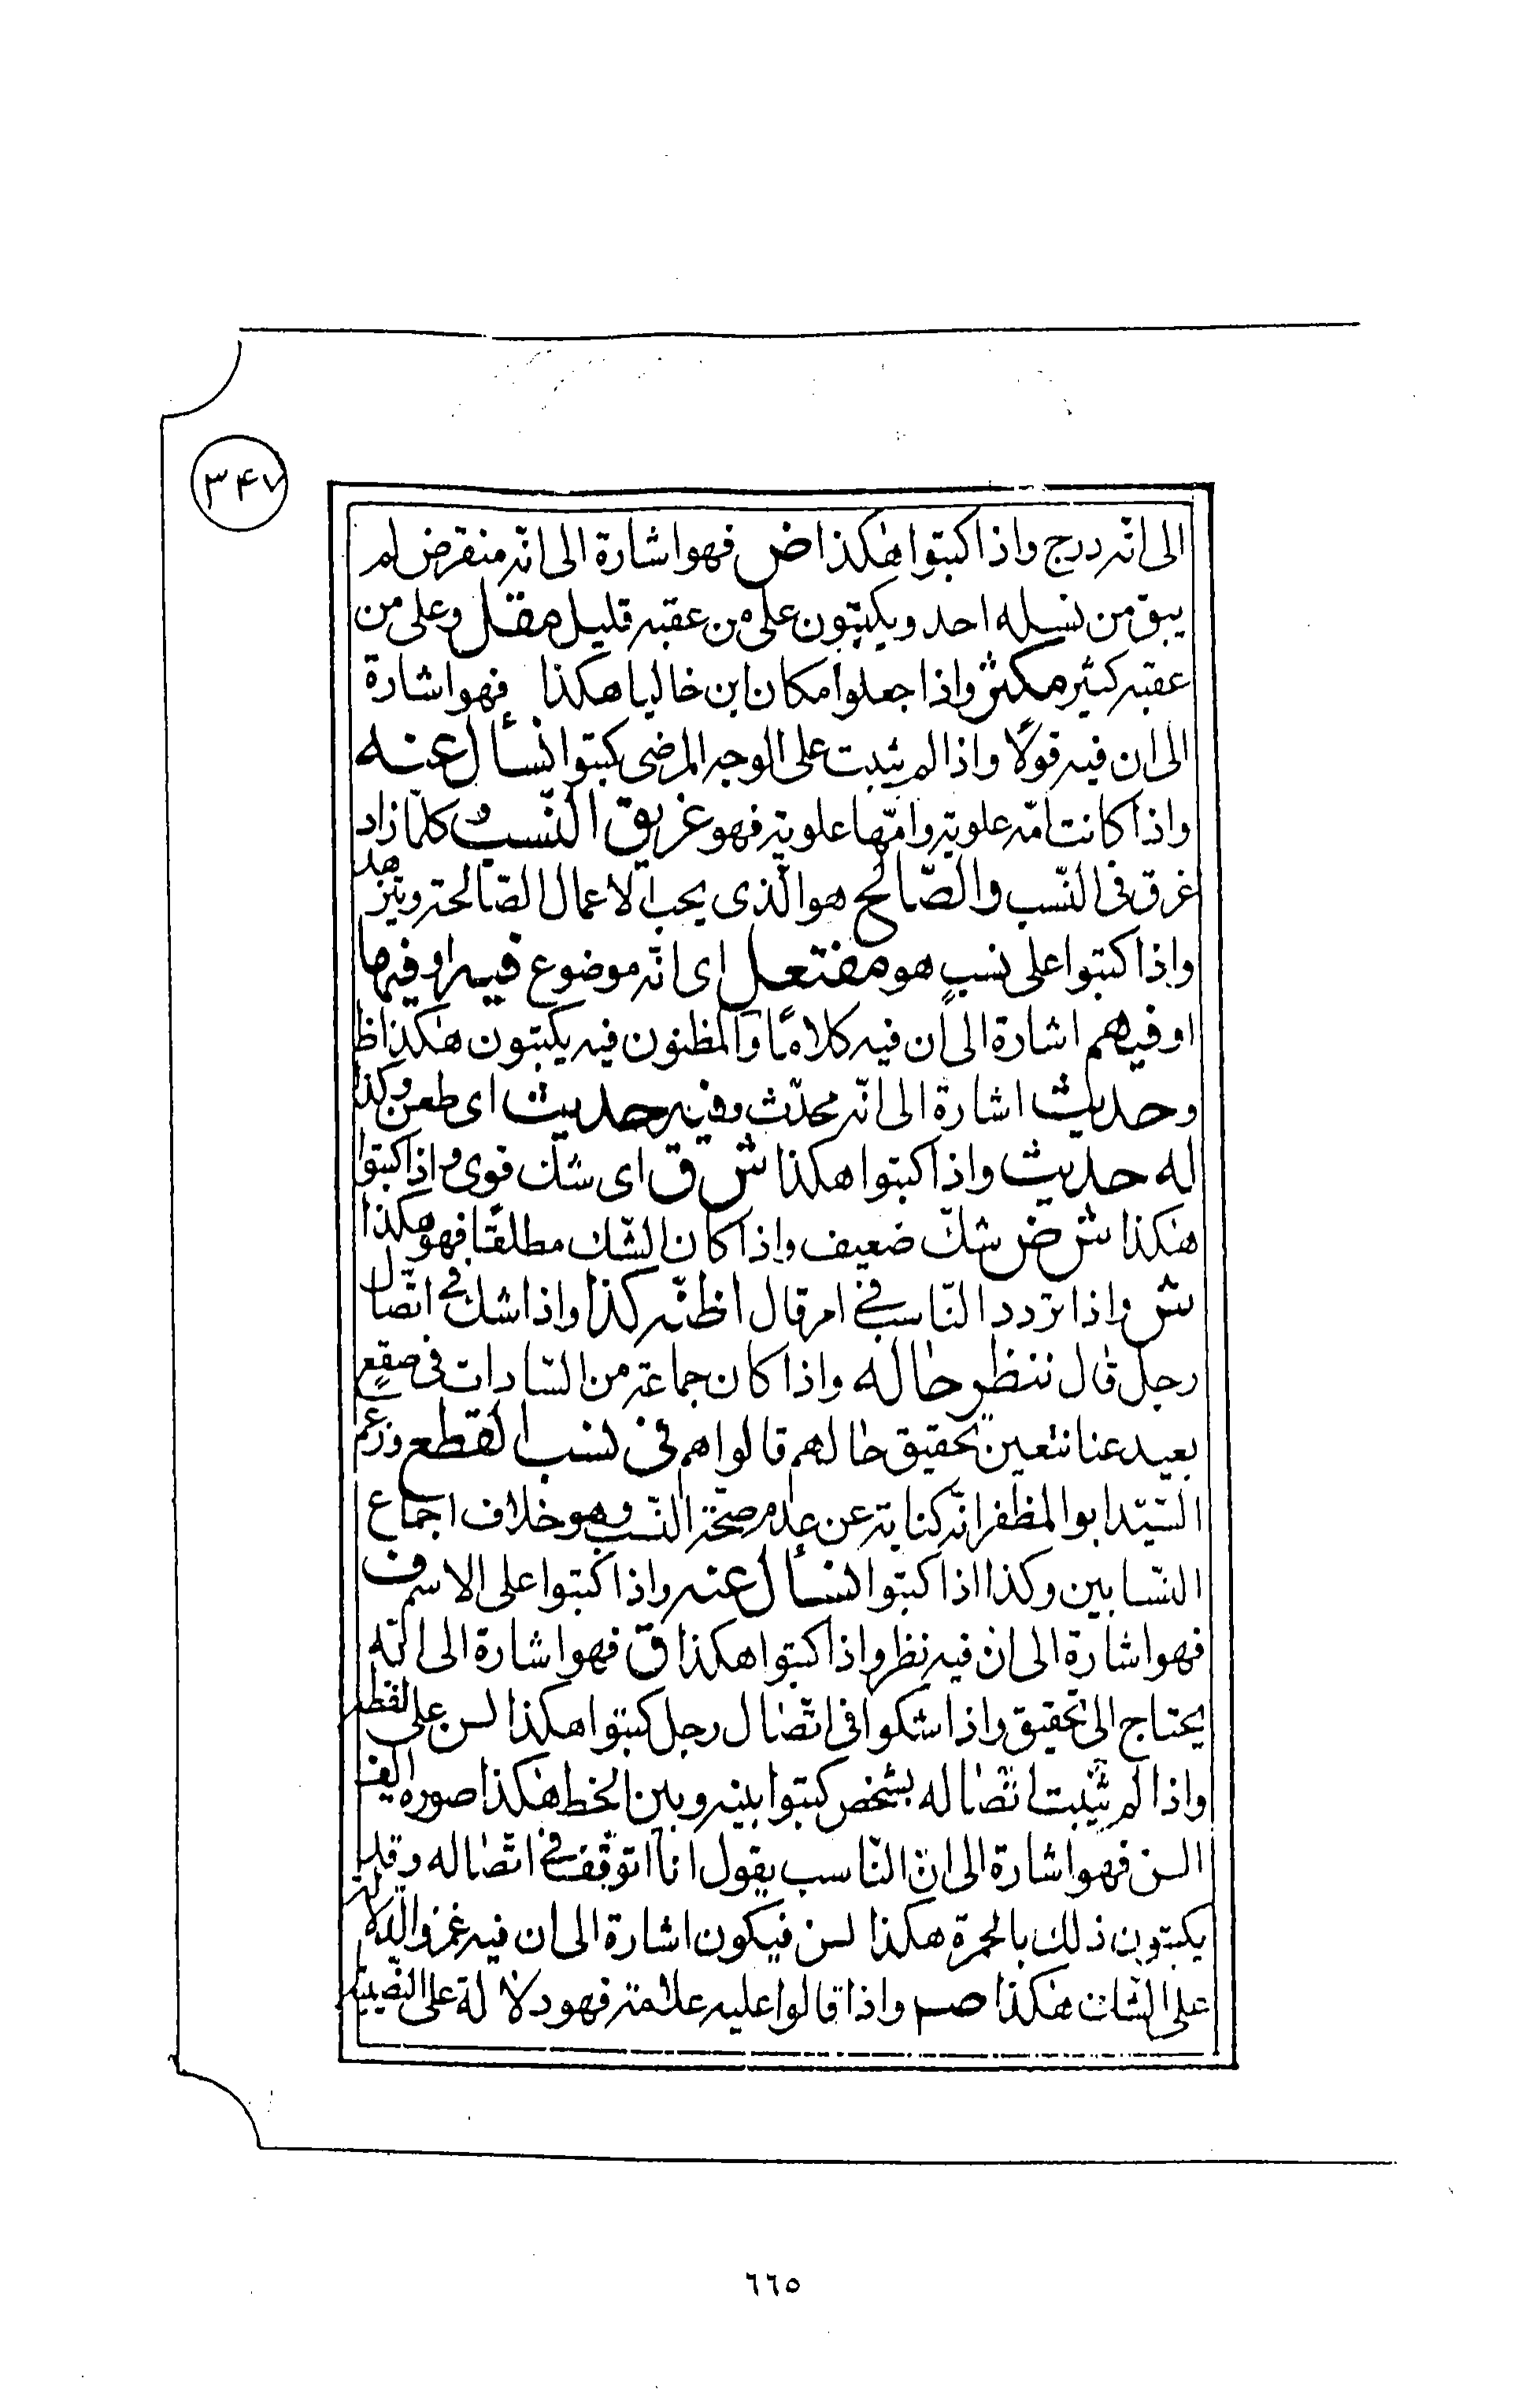 ٣۴٧
الى انّه درج واذا كتبوا هكذا ض فهو اشارة الى انّه منقرض لم
يبق من نسله احد ويكتبون على من عقبه قليل مقل وعلى من
عقبه كثير مكثر واذا جعلوا مكان ابن خاليا هكذا فهو اشارة
الى ان فيه قولًا واذا لم يثبت على الوجه المرضى كتبوا نسأل عنه
واذا كانت امّه علوية وامّها علوية فهو غريق النّسب وكلما زاد
غرق فى النّسب والصّالح هو الّذى يحب الاعمال الصّالحة ويتزهد
واذا كتبوا على نسبٍ هو مفتعل اى انّه موضوع فيه او فيها
او فيهم اشارة الى ان فيه كلامًا والمظنون فيه يكتبون هكذا ظ
وحديث اشارة الى انّه محدّث وفيه حديث اى طعن وكذا
له حديث واذا كتبوا هكذا ش ق اى شك قوى واذا كتبوا
هكذا ش ض شكّ ضعيف واذا كان الشّك مطلقًا فهو هكذا
ش واذا تردد النّاسب فى امر قال اظنّه كذا واذا شك فى اتّصال
رجل قال ننظر حاله واذا كان جماعة من السّادات فى صقعٍ
بعيد عنا نتعين تحقيق حالهم قالوا هم فى نسب القطع وزعم
السّيّد ابو المظفر انّه كناية عن عدم صحّة النّسب وهو خلاف اجماع
النسّابين وكذا اذا كتبوا نسأل عنه واذا كتبوا على الاسم ف
فهو اشارة الى ان فيه نظر واذا كتبوا هكذا ق فهو اشارة الى انّه
يحتاج الى تحقيق واذا شكوا فى اتّصال رجل كتبوا هكذا لبن على لفظه
واذا لم يثبت اتّصاله بشخص كتبوا بينه وبين الخط هكذا صوره الف
ابن فهو اشارة الى ان النّاسب يقول انا اتوقّف فى اتّصاله وقد
يكتبون ذلك بالحمرة هكذا لبن فيكون اشارة الى ان فيه غمز والدلالة
على الشّات هكذا صــ واذا قالوا عليه علامة فهو دلالة على النّصيبة
٦٦٥